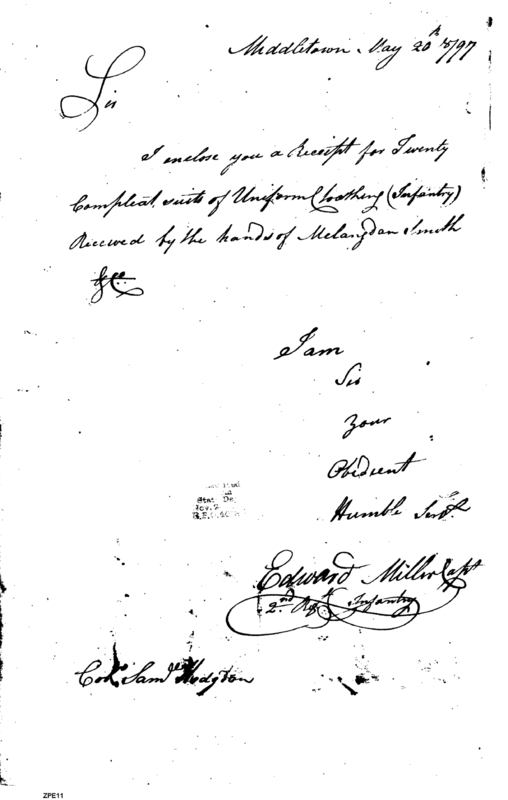 Middletown May 20th 1797
Sir
I enclose you a Receipt for Twenty
Compleat suits of Uniform Cloathing (Infantry)
Received by the hands of Melangdon Smith
&Co.
I am
Sir
Your
Obedient
Humble Servt.
Edward Miller Capt
2nd Regt Infantry
Colo. Saml. Hodgdon
ZPE11